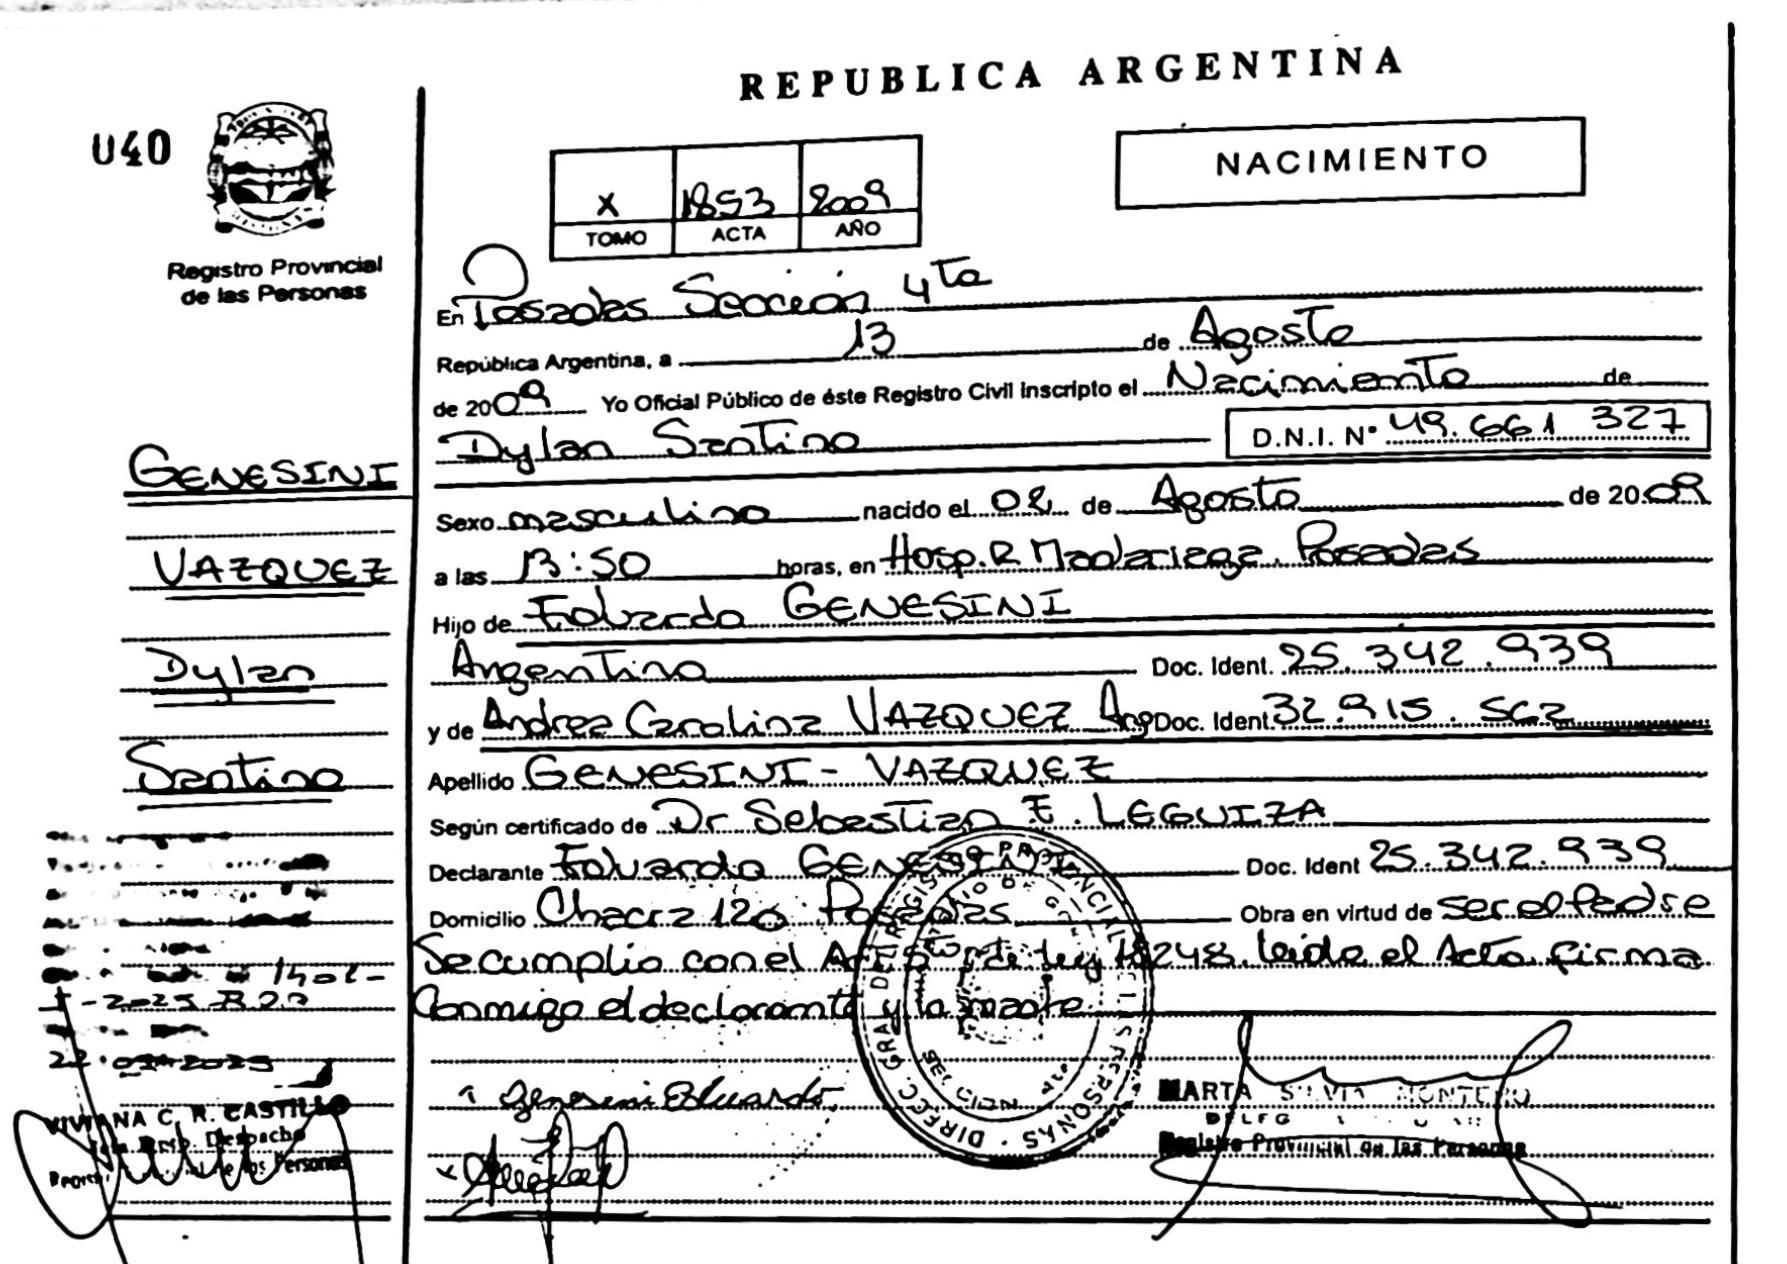 REPUBLICA ARGENTINA
U40
NACIMIENTO
X 1853 2009
TOMO ACTA AÑO
Registro Provincial
de las Personas
En Posadas Sección 4ta
República Argentina, a 13 de Agosto
de 2009 Yo Oficial Público de éste Registro Civil Inscripto el Nacimiento de
Dylan Santino D.N.I. N° 49.661 327
GENESINI
Sexo masculino nacido el 02 de Agosto de 2009
VAZQUEZ
a las 13:50 horas, en Hosp. R Madariaga. Posadas
Hijo de Eduardo GENESINI
Dylan
Argentino Doc. Ident. 25.342.939
y de Andrea Carolina VAZQUEZ Arg Doc. Ident. 32.915.562
Santino
Apellido GENESINI - VAZQUEZ
Según certificado de Dr Sebastian E. LEGUIZA
Declarante Eduardo GENESINI Doc. Ident 25.342.939
Domicilio Chacra 126 Posadas Obra en virtud de ser el Padre
Se cumplio con el Art de ley 18248. leida el Acta firma
Conmigo el declarante y la madre.
22.
Genesini Eduardo
VIVIANA C. R. CASTILLO
Despacho
de las Personas
MARTA SILVIA MONTERO
Registro Provincial de las Personas
DIRECC. GRAL. DEL REGISTRO PROVINCIAL DE LAS PERSONAS